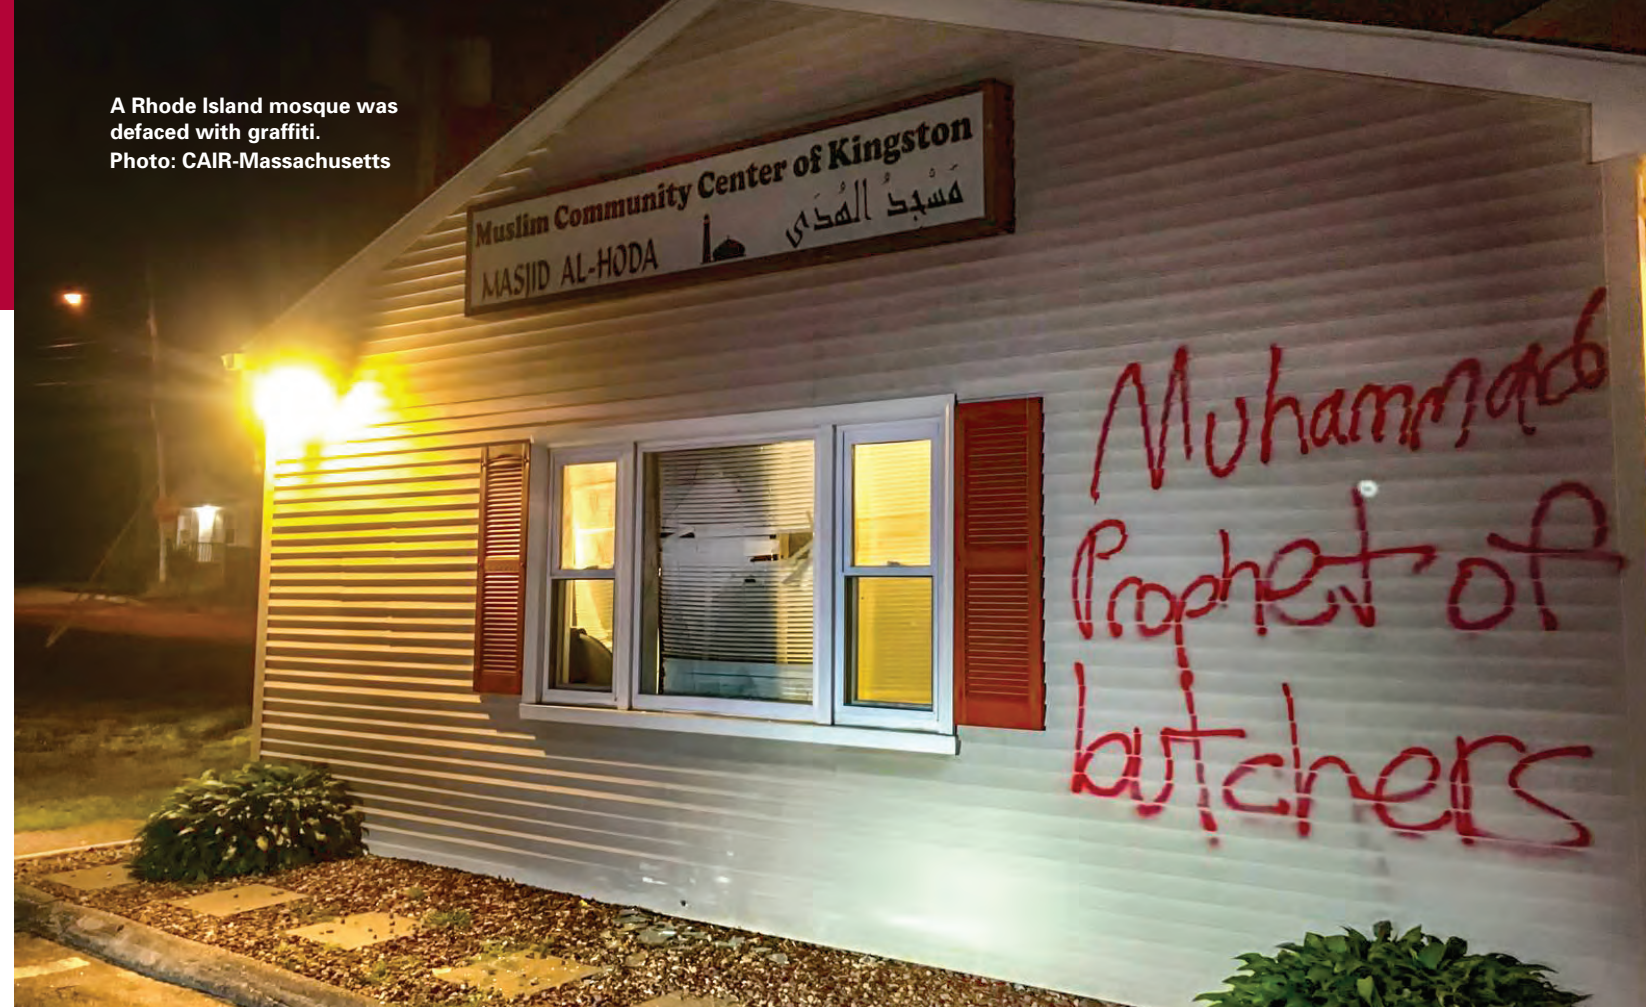 A Rhode Island mosque was
defaced with graffiti.
Photo: CAIR-Massachusetts
Muslim Community Center of Kingston
MASJID AL-HODA
مَسْجِدُ الهُدَى
Muhammad
Prophet of
butchers